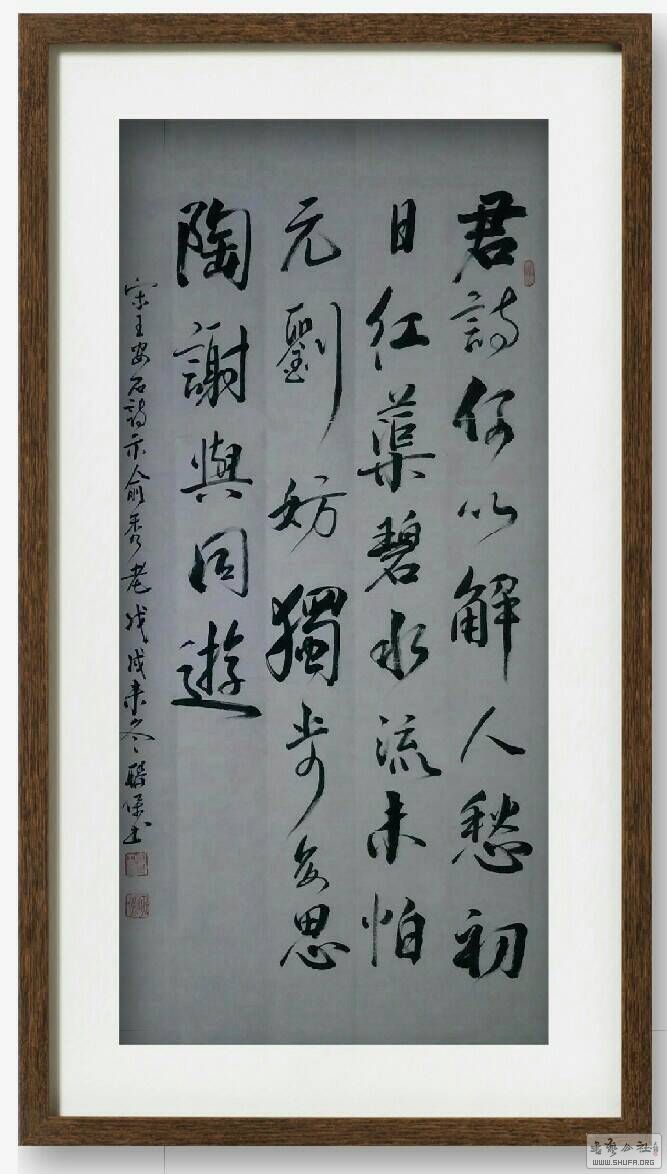 君詩何以解人愁初
日紅蕖碧水流未怕
元劉妨獨步每思
陶謝與同遊
宋王安石詩示俞秀老戊戌末冬联保书
WWW.SHUFA.ORG